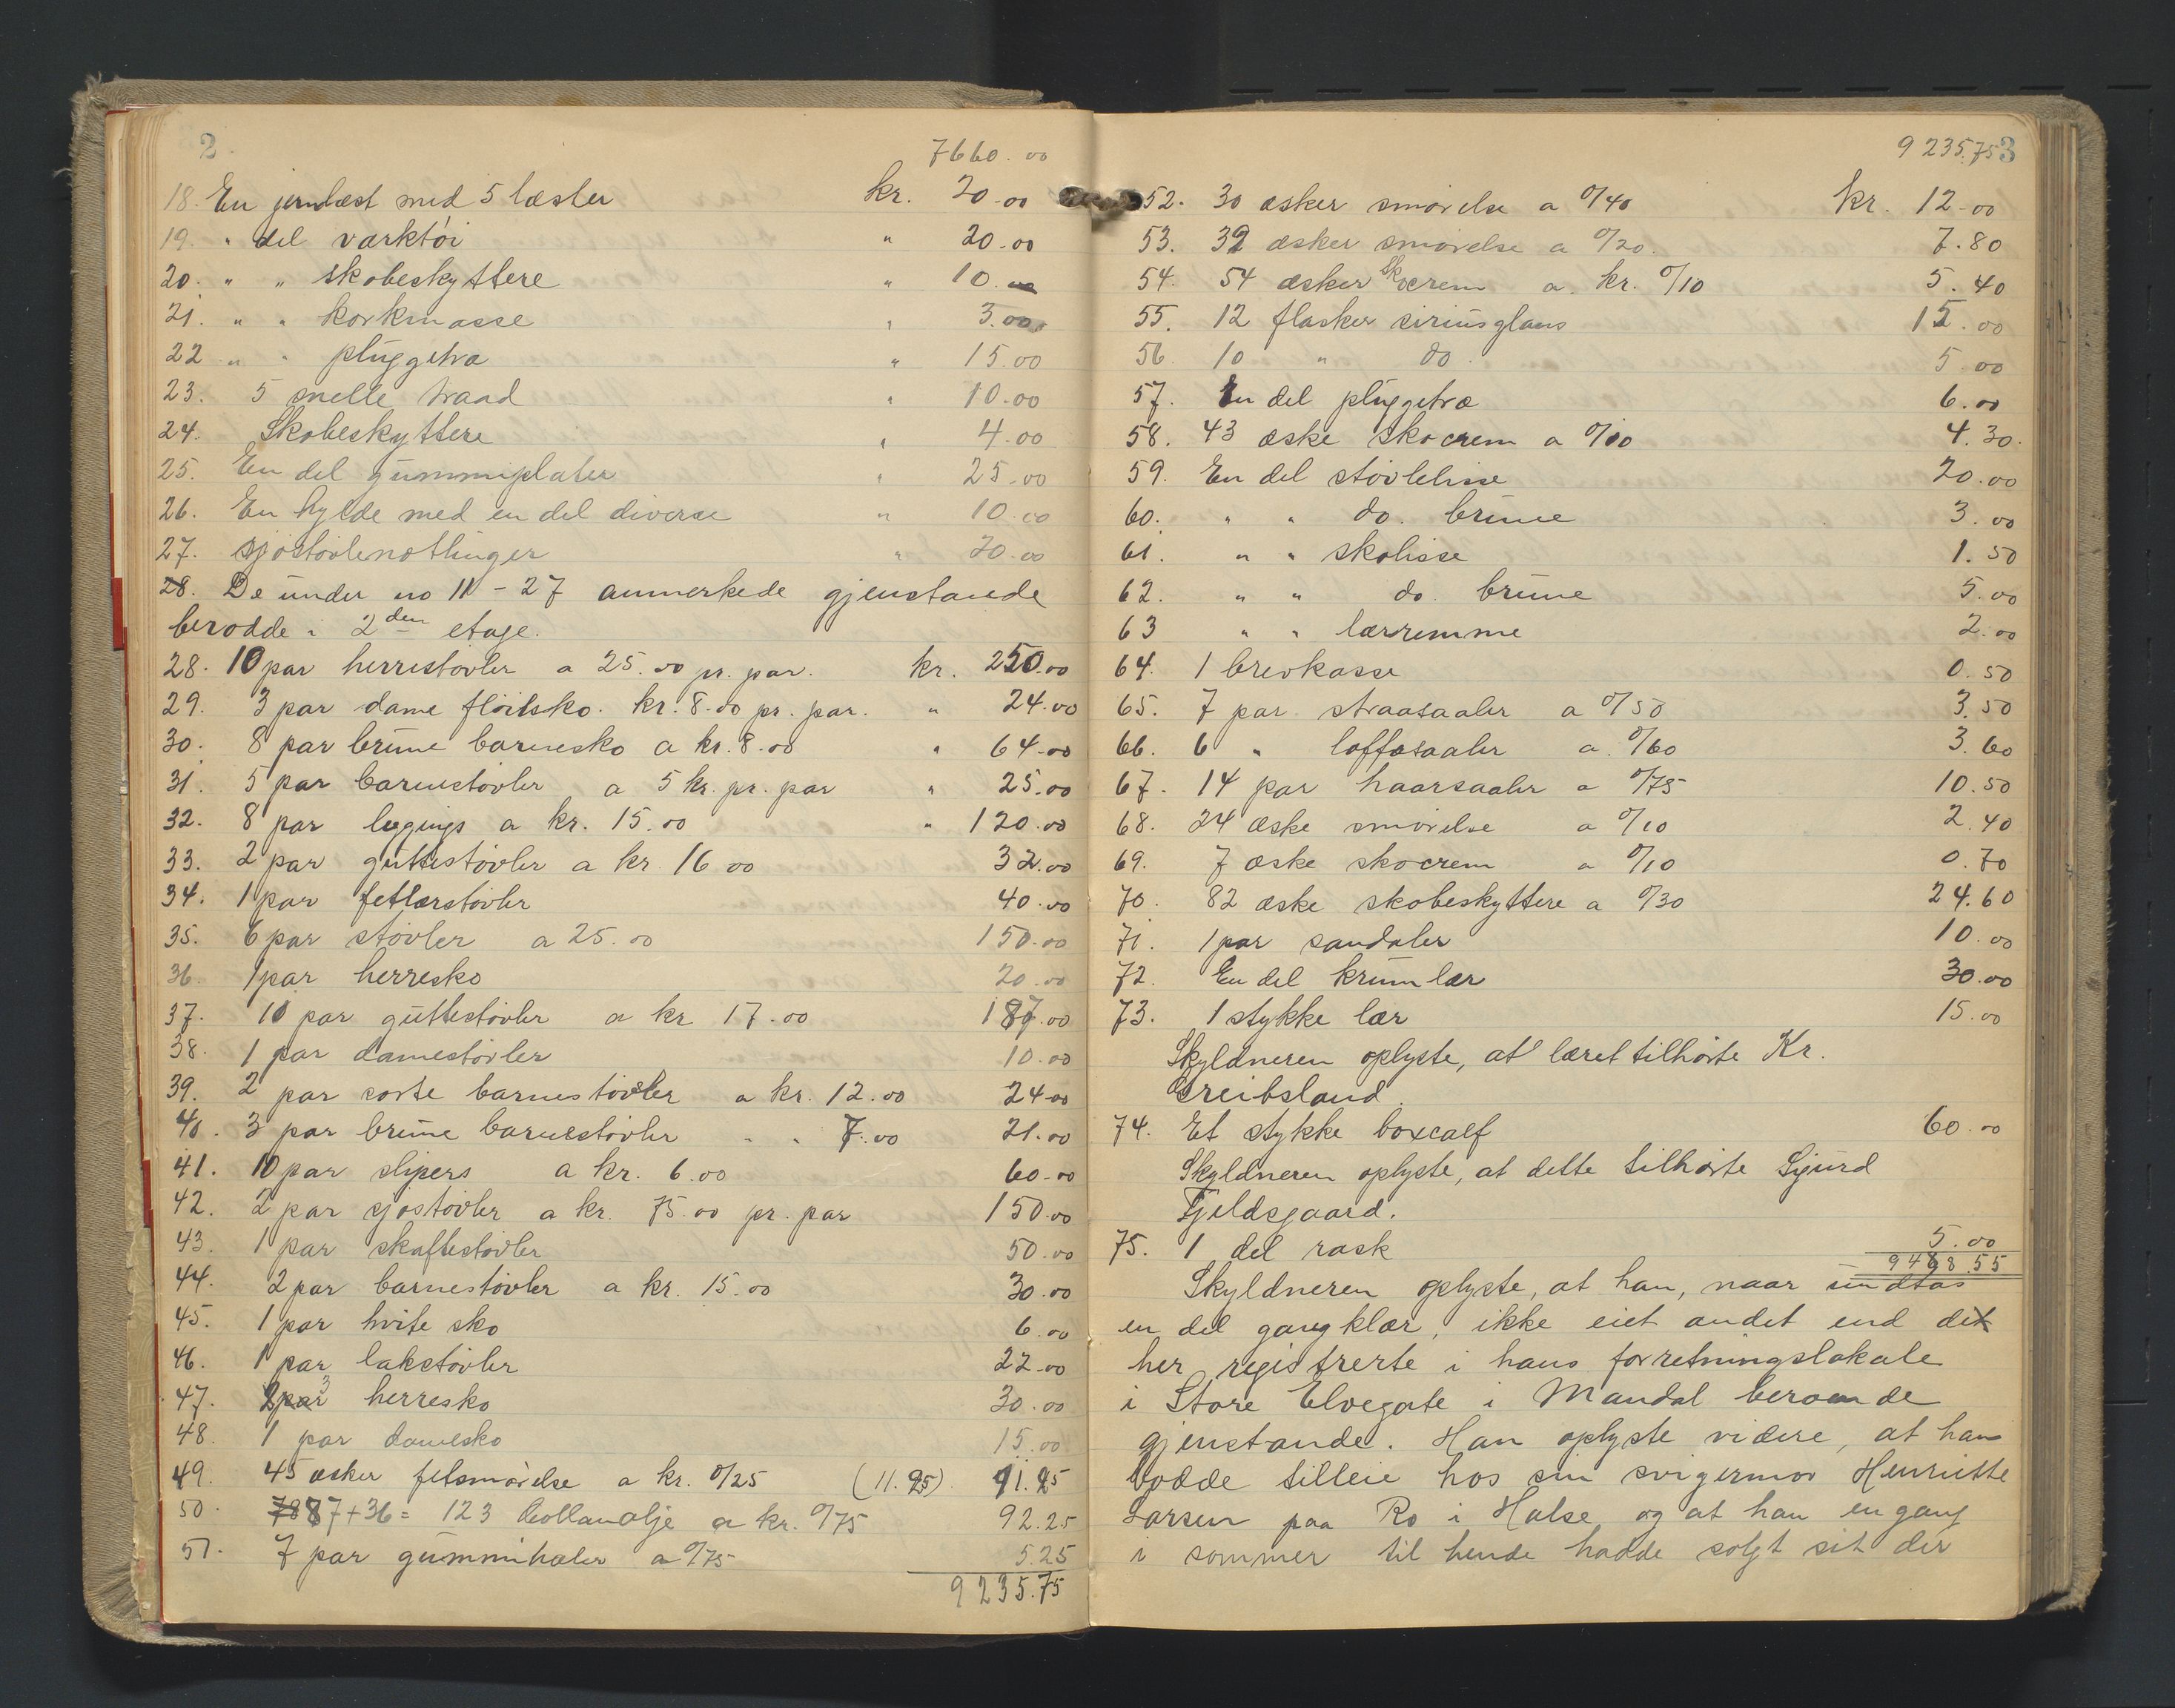 2
7660.00
18. En jernlæst med 5 læster kr. 20.00
19. " del værktøi " 20.00
20. " " skobeskyttere " 10.00
21. " " korkmasse " 3.00
22 " " pluggetræ " 15.00
23. 5 snelle traad " 10.00
24. Skobeskyttere " 4.00
25. En del gummiplater " 25.00
26. En hylde med en del diverse " 10.00
27. sjøstøvlenøtlinger " 20.00
28. De under no 11-27 anmerkede gjenstande
berodde i 2den etage.
28. 10 par herrestøvler a 25.00 pr. par. kr. 250.00
29. 3 par dame fløilsko. kr. 8.00 pr. par. " 24.00
30. 8 par brune barnesko a kr. 8.00 " 64.00
31. 5 par barnestøvler a 5 kr. pr. par " 25.00
32. 8 par leggings a kr. 15.00 " 120.00
33. 2 par guttestøvler a kr. 16.00 32.00
34. 1 par fetlærstøvler 40.00
35. 6 par støvler a 25.00 150.00
36. 1 par herresko 20.00
37. 11 par guttestøvler a kr 17.00 187.00
38. 1 par damestøvler 10.00
39. 2 par sorte barnestøvler a kr. 12.00 24.00
40. 3 par brune barnestøvler " " 7.00 21.00
41. 10 par slipers a kr. 6.00 60.00
42. 2 par sjøstøvler a kr. 75.00 pr. par 150.00
43. 1 par skaftestøvler 50.00
44. 2 par barnestøvler a kr. 15.00 30.00
45. 1 par hvite sko 6.00
46. 1 par lakstøvler 22.00
47. 3 herresko 30.00
48. 1 par damesko 15.00
49. 45 æsker fetsmørelse a kr. 0/25 (11.25) 11.25
50. 87+36= 123 Collanolje a kr. 0/75 92.25
51. 7 par gummihæler a 0/75 5.25
9235.75
9235.75 3
52. 30 æsker smørelse a 0/40 kr. 12.00
53. 39 æsker smørelse a 0/20. 7.80
54. 54 æsker skocrem a. kr. 0/10 5.40
55. 12 flasker siriusglans 15.00
56. 10 " do. 5.00
57. En del pluggetræ 6.00
58. 43 æske skocrem a 0/10 4.30.
59. En del støvlelisse 20.00
60. " " do. brune 3.00
61. " " skolisse 1.50
62. " " do. brune 5.00
63 " " lærremme 2.00
64. 1 brevkasse 0.50
65. 7 par straasaaler a 0/50 3.50
66. 6 " loffasaaler a. 0/60 3.60
67. 14 par haarsaaler a 0/75 10.50
68. 24 æske smørelse a 0/10 2.40
69. 7 æske skocrem a 0/10 0.70
70. 82 æske skobeskyttere a 0/30 24.60
71. 1 par sandaler 10.00
72. En del krumlær 30.00
73. 1 stykke lær 15.00
Skyldneren oplyste, at læret tilhørte Kr.
Greibsland.
74. Et stykke boxcalf 60.00
Skyldneren oplyste, at dette tilhørte Sigurd
Fjeldsgaard.
75. 1 del rask 5.00
9488.55
Skyldneren oplyste, at han, naar undtas
en del gangklær, ikke eiet andet end de
her registrerte i hans forretningslokale
i Store Elvegate i Mandal beroende
gjenstande. Han oplyste videre, at han
bodde tilleie hos sin svigermor Henriette
Larsen paa Ro i Halse og at han engang
i sommer til hende hadde solgt sit der